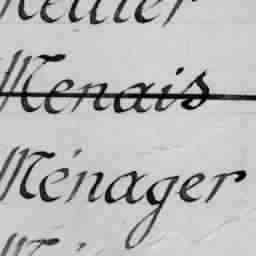 Menais
Ménager